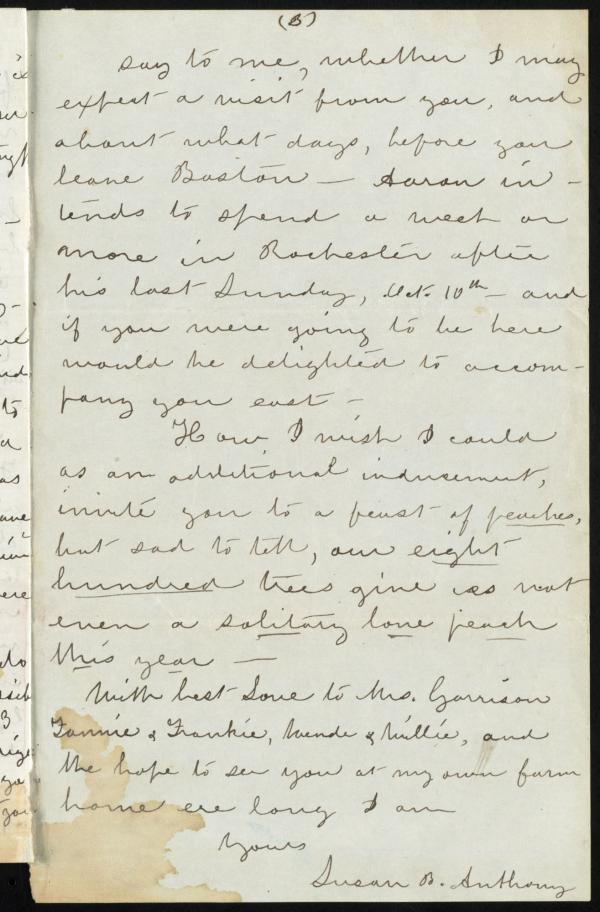 (3)
say to me, whether I may
expect a visit from you, and
about what days, before you
leave Boston — Aaron in-
tends to spend a week or
more in Rochester after
his last Sunday, Oct. 10th — and
if you were going to be here
would be delighted to accom-
pany you east —
How I wish I could
as an additional inducement,
invite you to a feast of peaches,
but sad to tell, our eight
hundred trees give us not
even a solitary lone peach
this year —
With best Love to Mrs. Garrison
Fannie & Frankie, Wende & Willie, and
the hope to see you at my own farm
home ere long I am
Yours
Susan B. Anthony